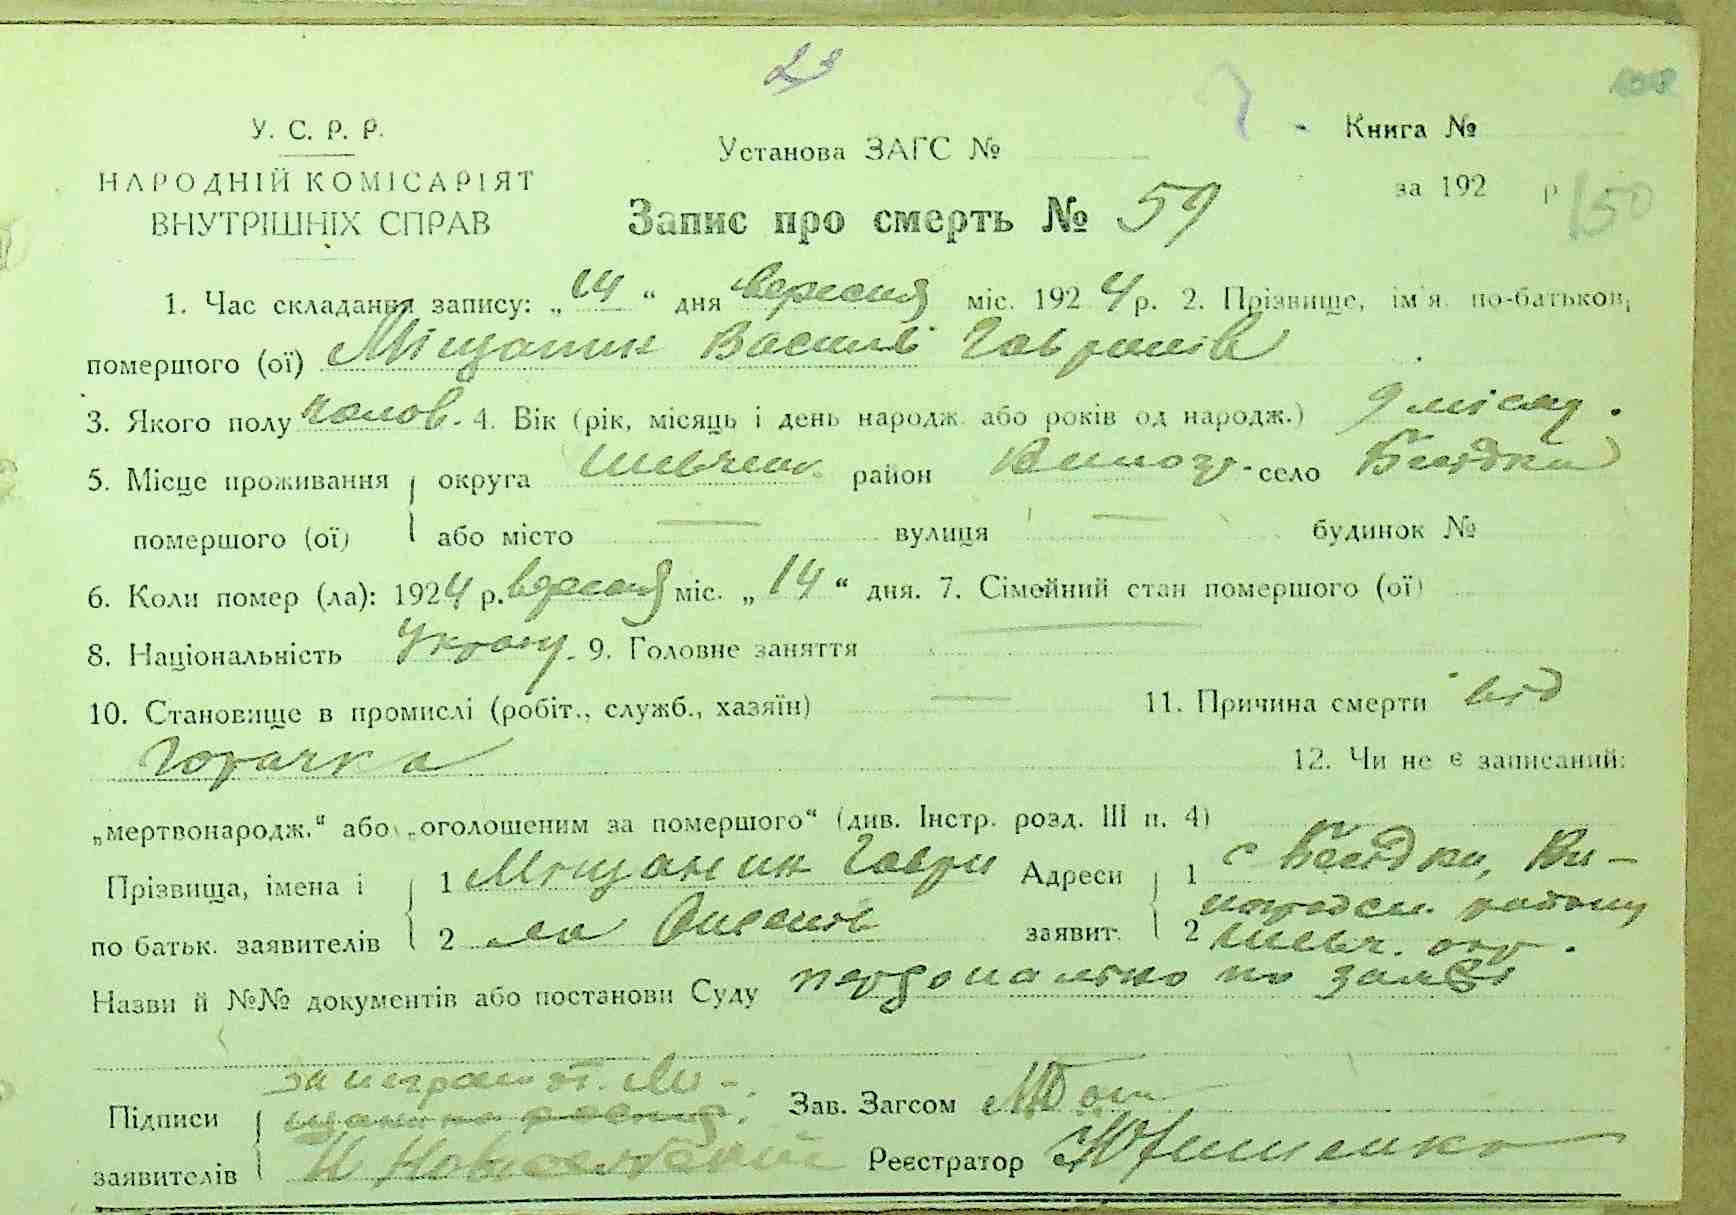 У. С. Р. Р.
НАРОДНІЙ КОМІСАРІЯТ
ВНУТРІШНІХ СПРАВ
Установа ЗАГС №
Книга №
за 192 р 150
Запис про смерть № 59
1. Час складання запису: „14“ дня вересня міс. 1924 р. 2. Прізвище, ім'я по-батькові
помершого (ої) Міщанин Василь Гаврилів
3. Якого полу чолов. 4. Вік (рік, місяць і день народж. або років од народж.) 9 місяц.
5. Місце проживання округа Шевченк. район Виногр. село Босівка
помершого (ої) або місто — вулиця — будинок №
6. Коли помер (ла): 1924 р. вересня міс. „14“ дня. 7. Сімейний стан помершого (ої)
8. Національність Украін. 9. Головне заняття —
10. Становище в промислі (робіт., служб., хазяїн) — 11. Причина смерти від
горячка 12. Чи не є записаний:
„мертвонародж.“ або „оголошеним за помершого“ (див. Інстр. розд. III п. 4)
Прізвища, імена і 1 Міщанин Гаври Адреси 1 с Босівки, Ви-
по батьк. заявителів 2 ла заявит. 2 ноградськ. району
Шевч. окр.
Назви й №№ документів або постанови Суду персонально по заяві
за неграмот. Мі-
Підписи щанина Зав. Загсом
заявителів Реєстратор